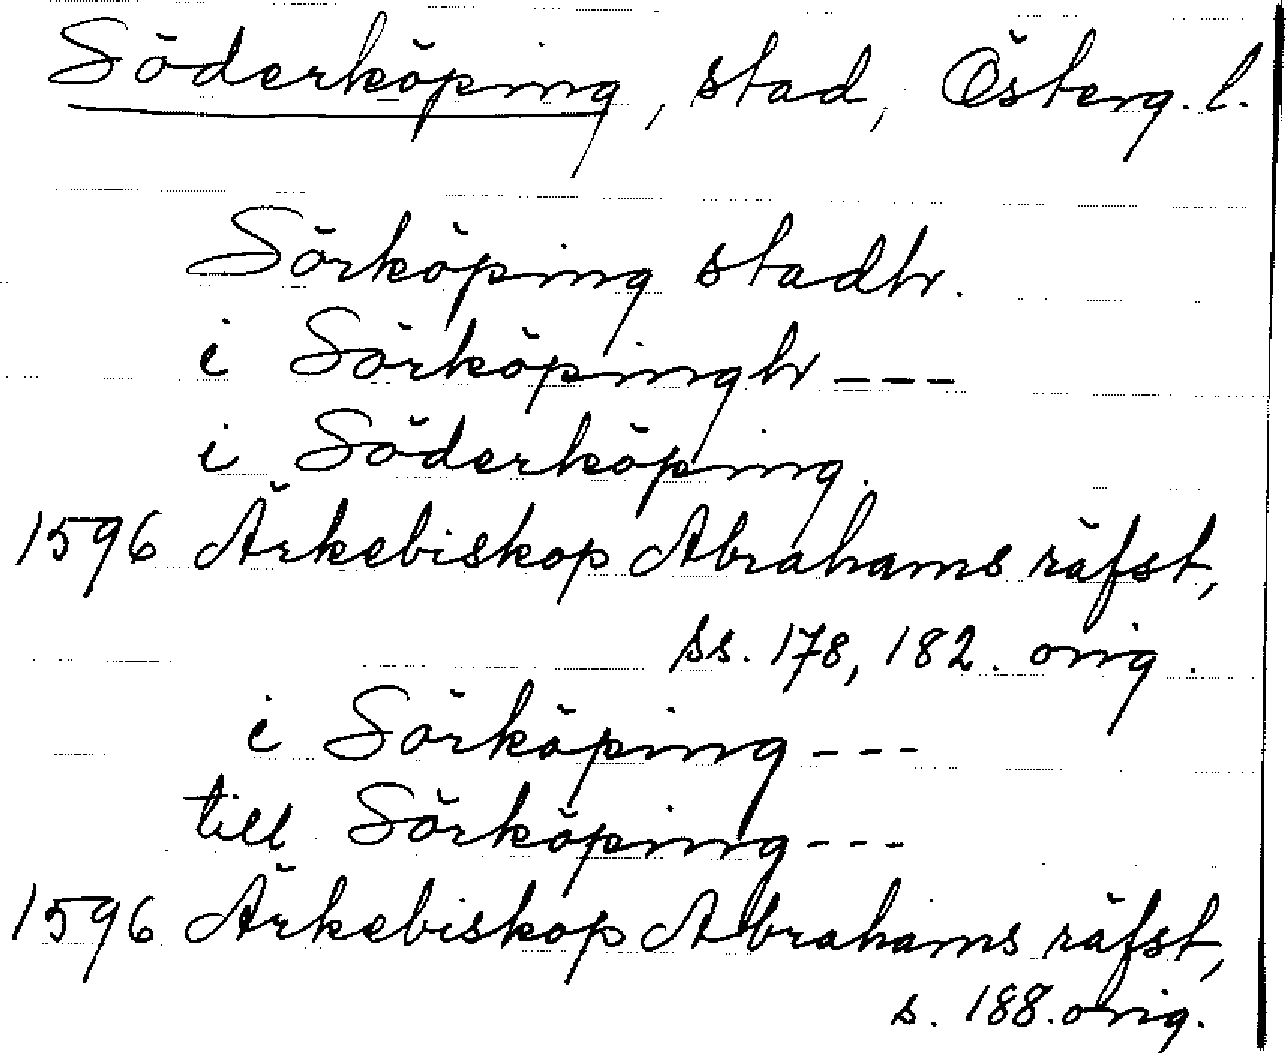 Söderköping, stad, Österg. l.
Sörköping stadhr.
i Sörköpinghr ---
i Söderköping.
1596 Ärkebiskop Abrahams räfst,
ss. 178, 182. orig.
i Sörköping ---
till Sörköping ---
1596 Ärkebiskop Abrahams räfst,
s. 188. orig.